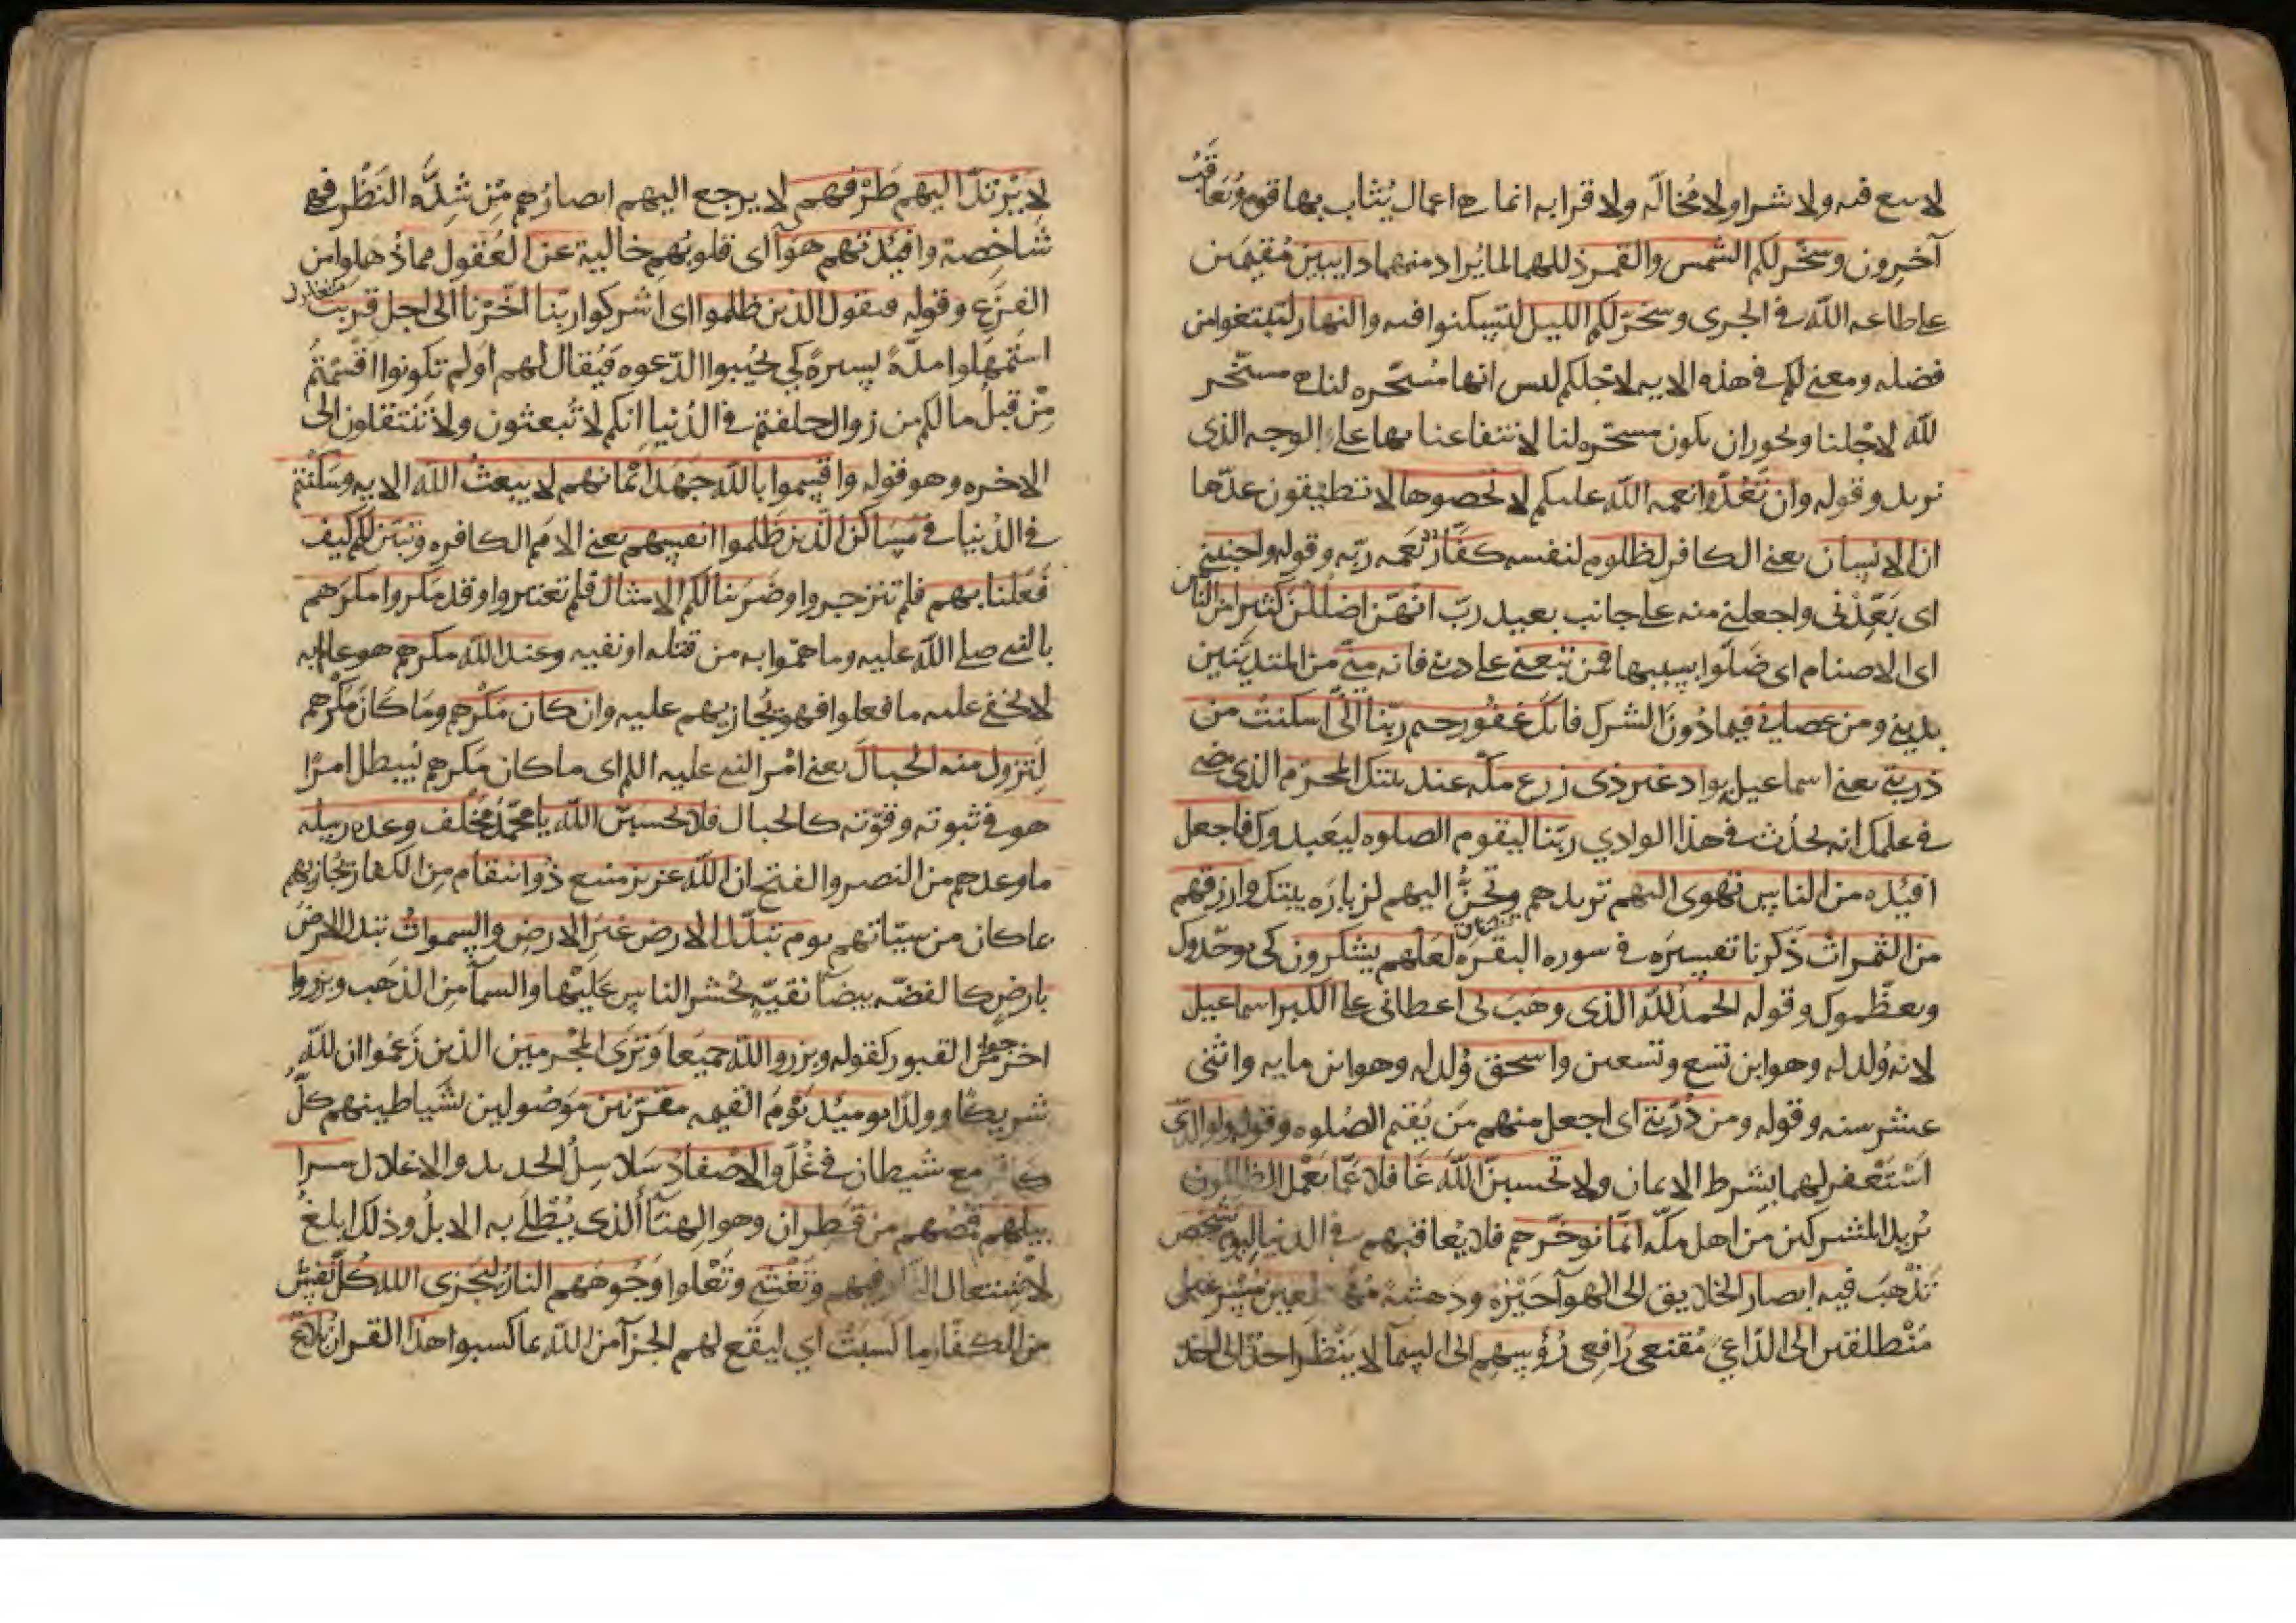 لا بيع فيه ولا شرا ولا مُخالّه ولا قرابه انما هي اعمال يُثاب بها قوم ويُعاقَب
آخرون وسخّر لكم الشمس والقمر ذللهما لما يُراد منهما دايبين مُقيمَين
على طاعه الله في الجرى وسخّر لكم الليل لتسكنوا فيه والنهار لتبتغوا من
فضله ومعنى لكم في هذه الايه لاجلكم ليس انها مُسخّره لنا هي مسخّر
لله لاجلنا ويجوز ان يكون مسخّره لنا لانتفاعنا بها على الوجه الذى
نريد وقوله وان تَعُدّوا نعمه الله عليكم لا تحصوها لا تطيقون عدّها
ان الانسان يعنى الكافر لظلوم لنفسه كفّار نعمه ربّه وقوله واجنبنى
اى بَعِّدْنى واجعلنى منه على جانب بعيد ربّ انهّن اضلَلْن كثيرا من الناس
اى الاصنام اى ضَلّوا بسببها فمن تبعنى على دينى فانه منّى من المتديّنين
بدينى ومن عصانى فيما دُونَ الشرك فانك غفُور رحيم ربّنا انّى اسكنتُ من
ذريتى يعنى اسماعيل بواد غير ذى زرع مكّه عند بيتك المحرّم الذى مضى
في علمك انه يحدُث في هذا الوادي ربّنا ليقوم الصلوه ليَعبدوك فاجعل
افئِده من الناس تهوى اليهم تريدهم وتحِنُّ اليهم لزيارَه بيتك وارزقهم
من الثمرات ذكرنا تفسيرَه في سوره البقرَه لعَلّهم يشكرون كى يوحّدوك
ويعظّموك وقوله الحمدُ للّه الذى وهَبَ لى اعطانى على الكبر اسماعيل
لانه وُلد له وهو ابن تسع وتسعين واسحق وُلد له وهو ابن مايه واثنى
عشر سنه وقوله ومن ذُرّيتى اى اجعل منهم مَن يُقيم الصّلوه وقوله ولوالدَىّ
اسْتَغفر لهما بشرط الايمان ولا تحسبنّ اللّهَ غَافلا عَمّا يَعْمل الظالمون
يُريد المشركين مِن اهل مكّه انّما نوخّرهم فلا يُعاقبهم في الدنيا ليوم تشخص
تَذْهبَ فيه ابصار الخلايق الى الهوآ حَيْرَة ودَهشَة مُهْطعين مُسْرعين
مُنْطلقين الى الدّاعِى مُقنعى رَافِعى رُؤسِهم الى السمآ لا يَنْظر احدٌ الى احد
لا يَرْتدّ اليهم طَرْفهم لا يرجع اليهم ابصارُهم مِن شِدَّه النَظَر فهى
شاخِصة وافئِدتهم هوآ اى قلوبُهم خالية عن العُقول مما ذُهلوا من
الفزَع وقوله فيقول الذين ظلموا اى اشركوا ربّنا اخّرْنا الى اجل قريب
استَمهَلوا مدّةً يسيرةً كى يُجيبوا الدّعوه فيُقال لهم اوَلم تكونوا اقسَمتُم
مِّن قبل ما لكم من زوال حلفتم في الدُنيا انكم لا تُبعثون ولا تَنتقلون الى
الاخره وهو قوله واقسِموا باللّه جَهدَ ايْمانهم لا يبعثُ اللّه الايه وسَكنْتم
في الدُنيا في مَسَاكن الذين ظلموا انفسهم يعنى الامَم الكافره وتبيّن لكم كيف
فَعَلنا بهم فلم تنزجروا وضَرَبنا لكم الامثال فلم تعتبروا وقد مكروا مكرَهم
بالنبى صلى اللّه عليه وما همّوا به من قتله او نفيه وعند اللّه مكرهم هو عالم به
لا يخفى عليه ما فعلوا فهو يُجازيهم عليه وان كان مَكْرهم ومَا كانَ مَكْرهم
لِتزول منه الجبال يعنى امْر النبى عليه السلم اى ما كان مَكرهم ليبطل امرًا
هو في ثبوته وقوّته كالجبال فلا تحسبنّ اللّه يا محمّد مُخْلف وعده رسله
ما وعدهم من النصر والفتح ان اللّه عزيز منيع ذُو انتقام مِن الكفار يُجازيهم
بما كان من سيّئاتهم يوم تبدّل الارض غيرَ الارضِ والسموات تبدل الارضَ
بارضٍ كالفضّه بيضآ نقيّهٍ يُحشر الناس عَليْها والسمآ مِن الذهَب وبرزوا
خرجوا من القبور كقوله وبرزوا للّه جميعا وَتَرى المجرمين الذين زَعَموا ان للّه
شريكًا وولدًا يوميذ يَوْم القيمه مقرّنين مَوْصُولين بشَياطينهم كلّ
كافر مع شيطان في غُلٍّ والاصفاد سَلاسِلُ الحديد والاغلال سرا
بيلهم قُمُصُهم من قَطِران وهو الهِنآ الذى يُطْلَى به الابلُ وذلك ابلغُ
لاشتعال النّار فيهم وتَغْشى وتَعْلوا وجُوههم النارُ ليَجزى الله كلَّ نَفس
من الكفّار ما كَسَبَتْ اى ليقع لهم الجزآ من اللّه بما كسبوا هذا القران بلاغ